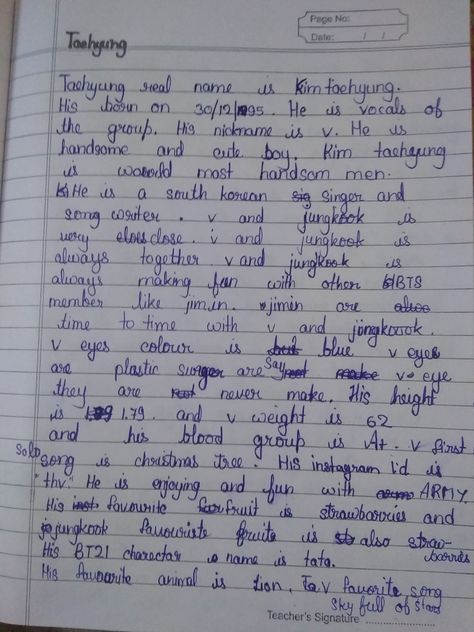 Page No:
Date: / /
Taehyung
Taehyung real name is Kim taehyung.
His born on 30/12/1995. He is vocals of
the group. His nickname is v. He is
handsome and cute boy. Kim taehyung
is woorld most handsom men.
He is a south korean singer and
song writer. v and jungkook is
very close. v and jungkook is
always together. v and jungkook is
always making fun with other BTS
member like jimin. jimin are
time to time with v and jongkoook.
v eyes colour is blue v eyes
are plastic surger are say v eye
they are never make. His height
is 1.79. and v weight is 62
and his blood group is A+. v first
solo song is christmas tree. His instagram id is
"thv." He is enjoying and fun with ARMY.
His favourite fruit is strawbarries and
jungkook favouriste fruite is also straw-
barries
His BT21 charectar name is tata.
His favourite animal is Lion. v favorite song
Sky full of stars
Teacher's Signature